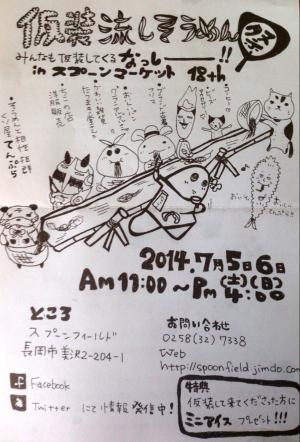 仮装流しそうめん祭
みんなも仮装してくるなっしー!!
in スプーンマーケット 18th
そうめんと相性抜群
てんぷら
洋服販売
2014.7月5日6日
(土)(日)
Am11:00~Pm4:00
ところ
スプーンフィールド
長岡市美沢2-204-1
Facebook
Twitter にて情報発信中!
お問い合わせ
0258(32)7338
Web
http://spoonfield.jimdo.com
特典
仮装して来てくださった方に
ミニアイスプレゼント!!!